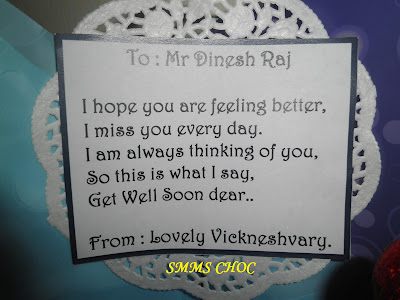 To : Mr Dinesh Raj
I hope you are feeling better,
I miss you every day.
I am always thinking of you,
So this is what I say,
Get Well Soon dear..
From : Lovely Vickneshvary.
SMMS CHOC